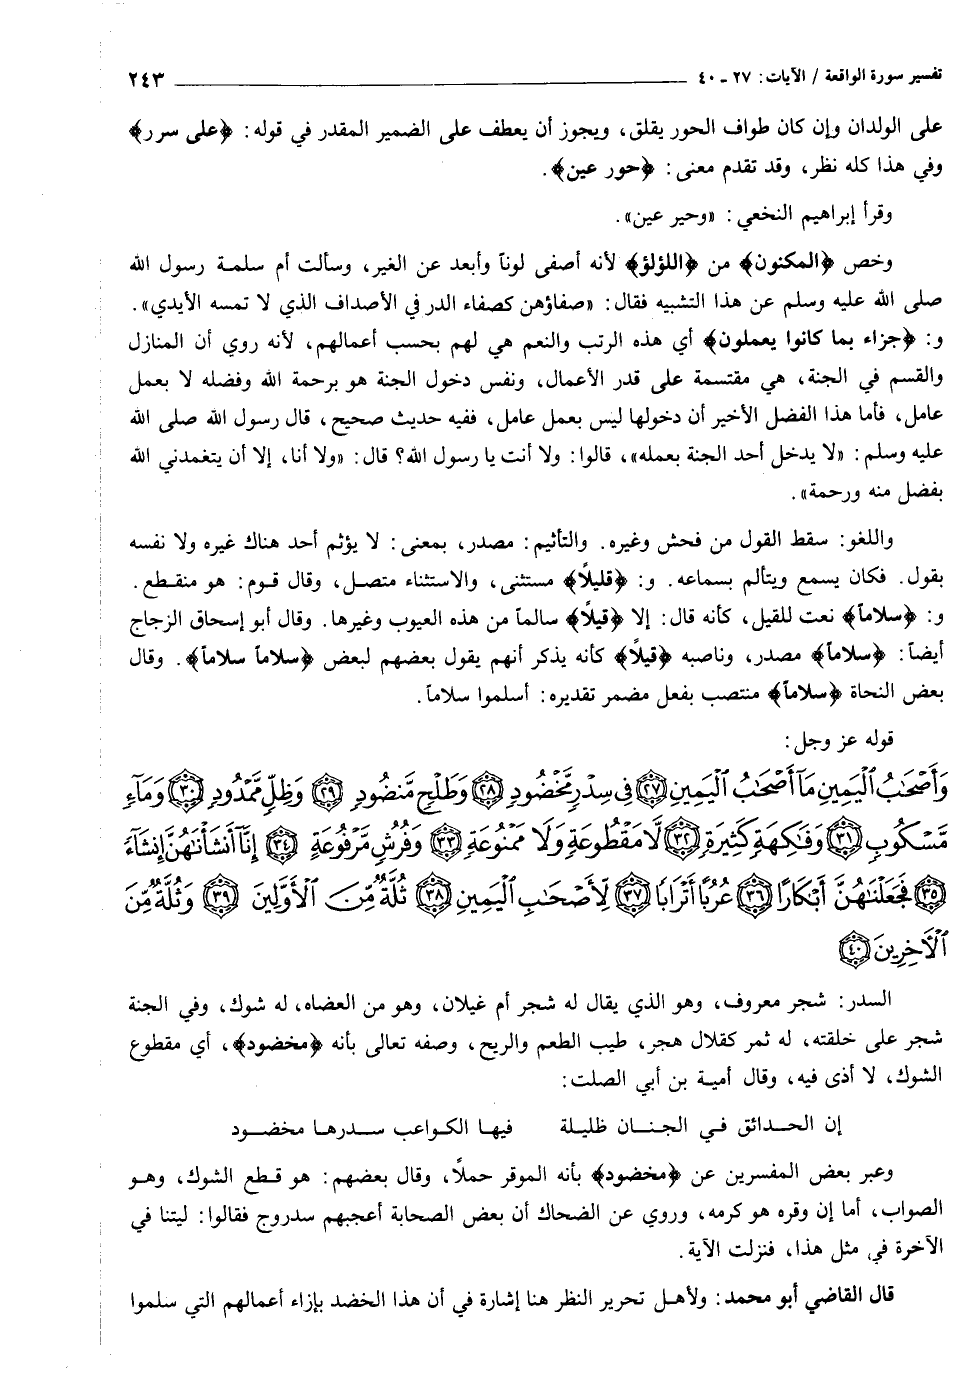 تفسير سورة الواقعة / الآيات: ٢٧ ـ ٤٠ ٢٤٣
على الولدان وإن كان طواف الحور يقلق، ويجوز أن يعطف على الضمير المقدر في قوله: ﴿على سرر﴾
وفي هذا كله نظر، وقد تقدم معنى: ﴿حور عين﴾.
وقرأ إبراهيم النخعي: «وحير عين».
وخص ﴿المكنون﴾ من ﴿اللؤلؤ﴾ لأنه أصفى لوناً وأبعد عن الغير، وسألت أم سلمة رسول الله
صلى الله عليه وسلم عن هذا التشبيه فقال: «صفاؤهن كصفاء الدر في الأصداف الذي لا تمسه الأيدي».
و: ﴿جزاء بما كانوا يعملون﴾ أي هذه الرتب والنعم هي لهم بحسب أعمالهم، لأنه روي أن المنازل
والقسم في الجنة، هي مقتسمة على قدر الأعمال، ونفس دخول الجنة هو برحمة الله وفضله لا بعمل
عامل، فأما هذا الفضل الأخير أن دخولها ليس بعمل عامل، ففيه حديث صحيح، قال رسول الله صلى الله
عليه وسلم: «لا يدخل أحد الجنة بعمله»، قالوا: ولا أنت يا رسول الله؟ قال: «ولا أنا، إلا أن يتغمدني الله
بفضل منه ورحمة».
واللغو: سقط القول من فحش وغيره. والتأثيم: مصدر، بمعنى: لا يؤثم أحد هناك غيره ولا نفسه
بقول. فكان يسمع ويتألم بسماعه. و: ﴿قليلًا﴾ مستثنى، والاستثناء متصل، وقال قوم: هو منقطع.
و: ﴿سلاماً﴾ نعت للقيل، كأنه قال: إلا ﴿قيلًا﴾ سالماً من هذه العيوب وغيرها. وقال أبو إسحاق الزجاج
أيضاً: ﴿سلاماً﴾ مصدر، وناصبه ﴿قيلًا﴾ كأنه يذكر أنهم يقول بعضهم لبعض ﴿سلاماً سلاماً﴾. وقال
بعض النحاة ﴿سلاماً﴾ منتصب بفعل مضمر تقديره: أسلموا سلاماً.
قوله عز وجل:
وَأَصْحَٰبُ ٱلْيَمِينِ مَآ أَصْحَٰبُ ٱلْيَمِينِ ٢٧ فِى سِدْرٍ مَّخْضُودٍ ٢٨ وَطَلْحٍ مَّنضُودٍ ٢٩ وَظِلٍّ مَّمْدُودٍ ٣٠ وَمَآءٍ
مَّسْكُوبٍ ٣١ وَفَٰكِهَةٍ كَثِيرَةٍ ٣٢ لَّا مَقْطُوعَةٍ وَلَا مَمْنُوعَةٍ ٣٣ وَفُرُشٍ مَّرْفُوعَةٍ ٣٤ إِنَّآ أَنشَأْنَٰهُنَّ إِنشَآءً
٣٥ فَجَعَلْنَٰهُنَّ أَبْكَارًا ٣٦ عُرُبًا أَتْرَابًا ٣٧ لِّأَصْحَٰبِ ٱلْيَمِينِ ٣٨ ثُلَّةٌ مِّنَ ٱلْأَوَّلِينَ ٣٩ وَثُلَّةٌ مِّنَ
ٱلْأَخِرِينَ ٤٠
السدر: شجر معروف، وهو الذي يقال له شجر أم غيلان، وهو من العضاه، له شوك، وفي الجنة
شجر على خلقته، له ثمر كقلال هجر، طيب الطعم والريح، وصفه تعالى بأنه ﴿مخضود﴾، أي مقطوع
الشوك، لا أذى فيه، وقال أمية بن أبي الصلت:
إن الحدائق في الجنان ظليلة فيها الكواعب سدرها مخضود
وعبر بعض المفسرين عن ﴿مخضود﴾ بأنه الموقر حملًا، وقال بعضهم: هو قطع الشوك، وهو
الصواب، أما إن وقره هو كرمه، وروي عن الضحاك أن بعض الصحابة أعجبهم سدروج فقالوا: ليتنا في
الآخرة في مثل هذا، فنزلت الآية.
قال القاضي أبو محمد: ولأهل تحرير النظر هنا إشارة في أن هذا الخضد بإزاء أعمالهم التي سلموا